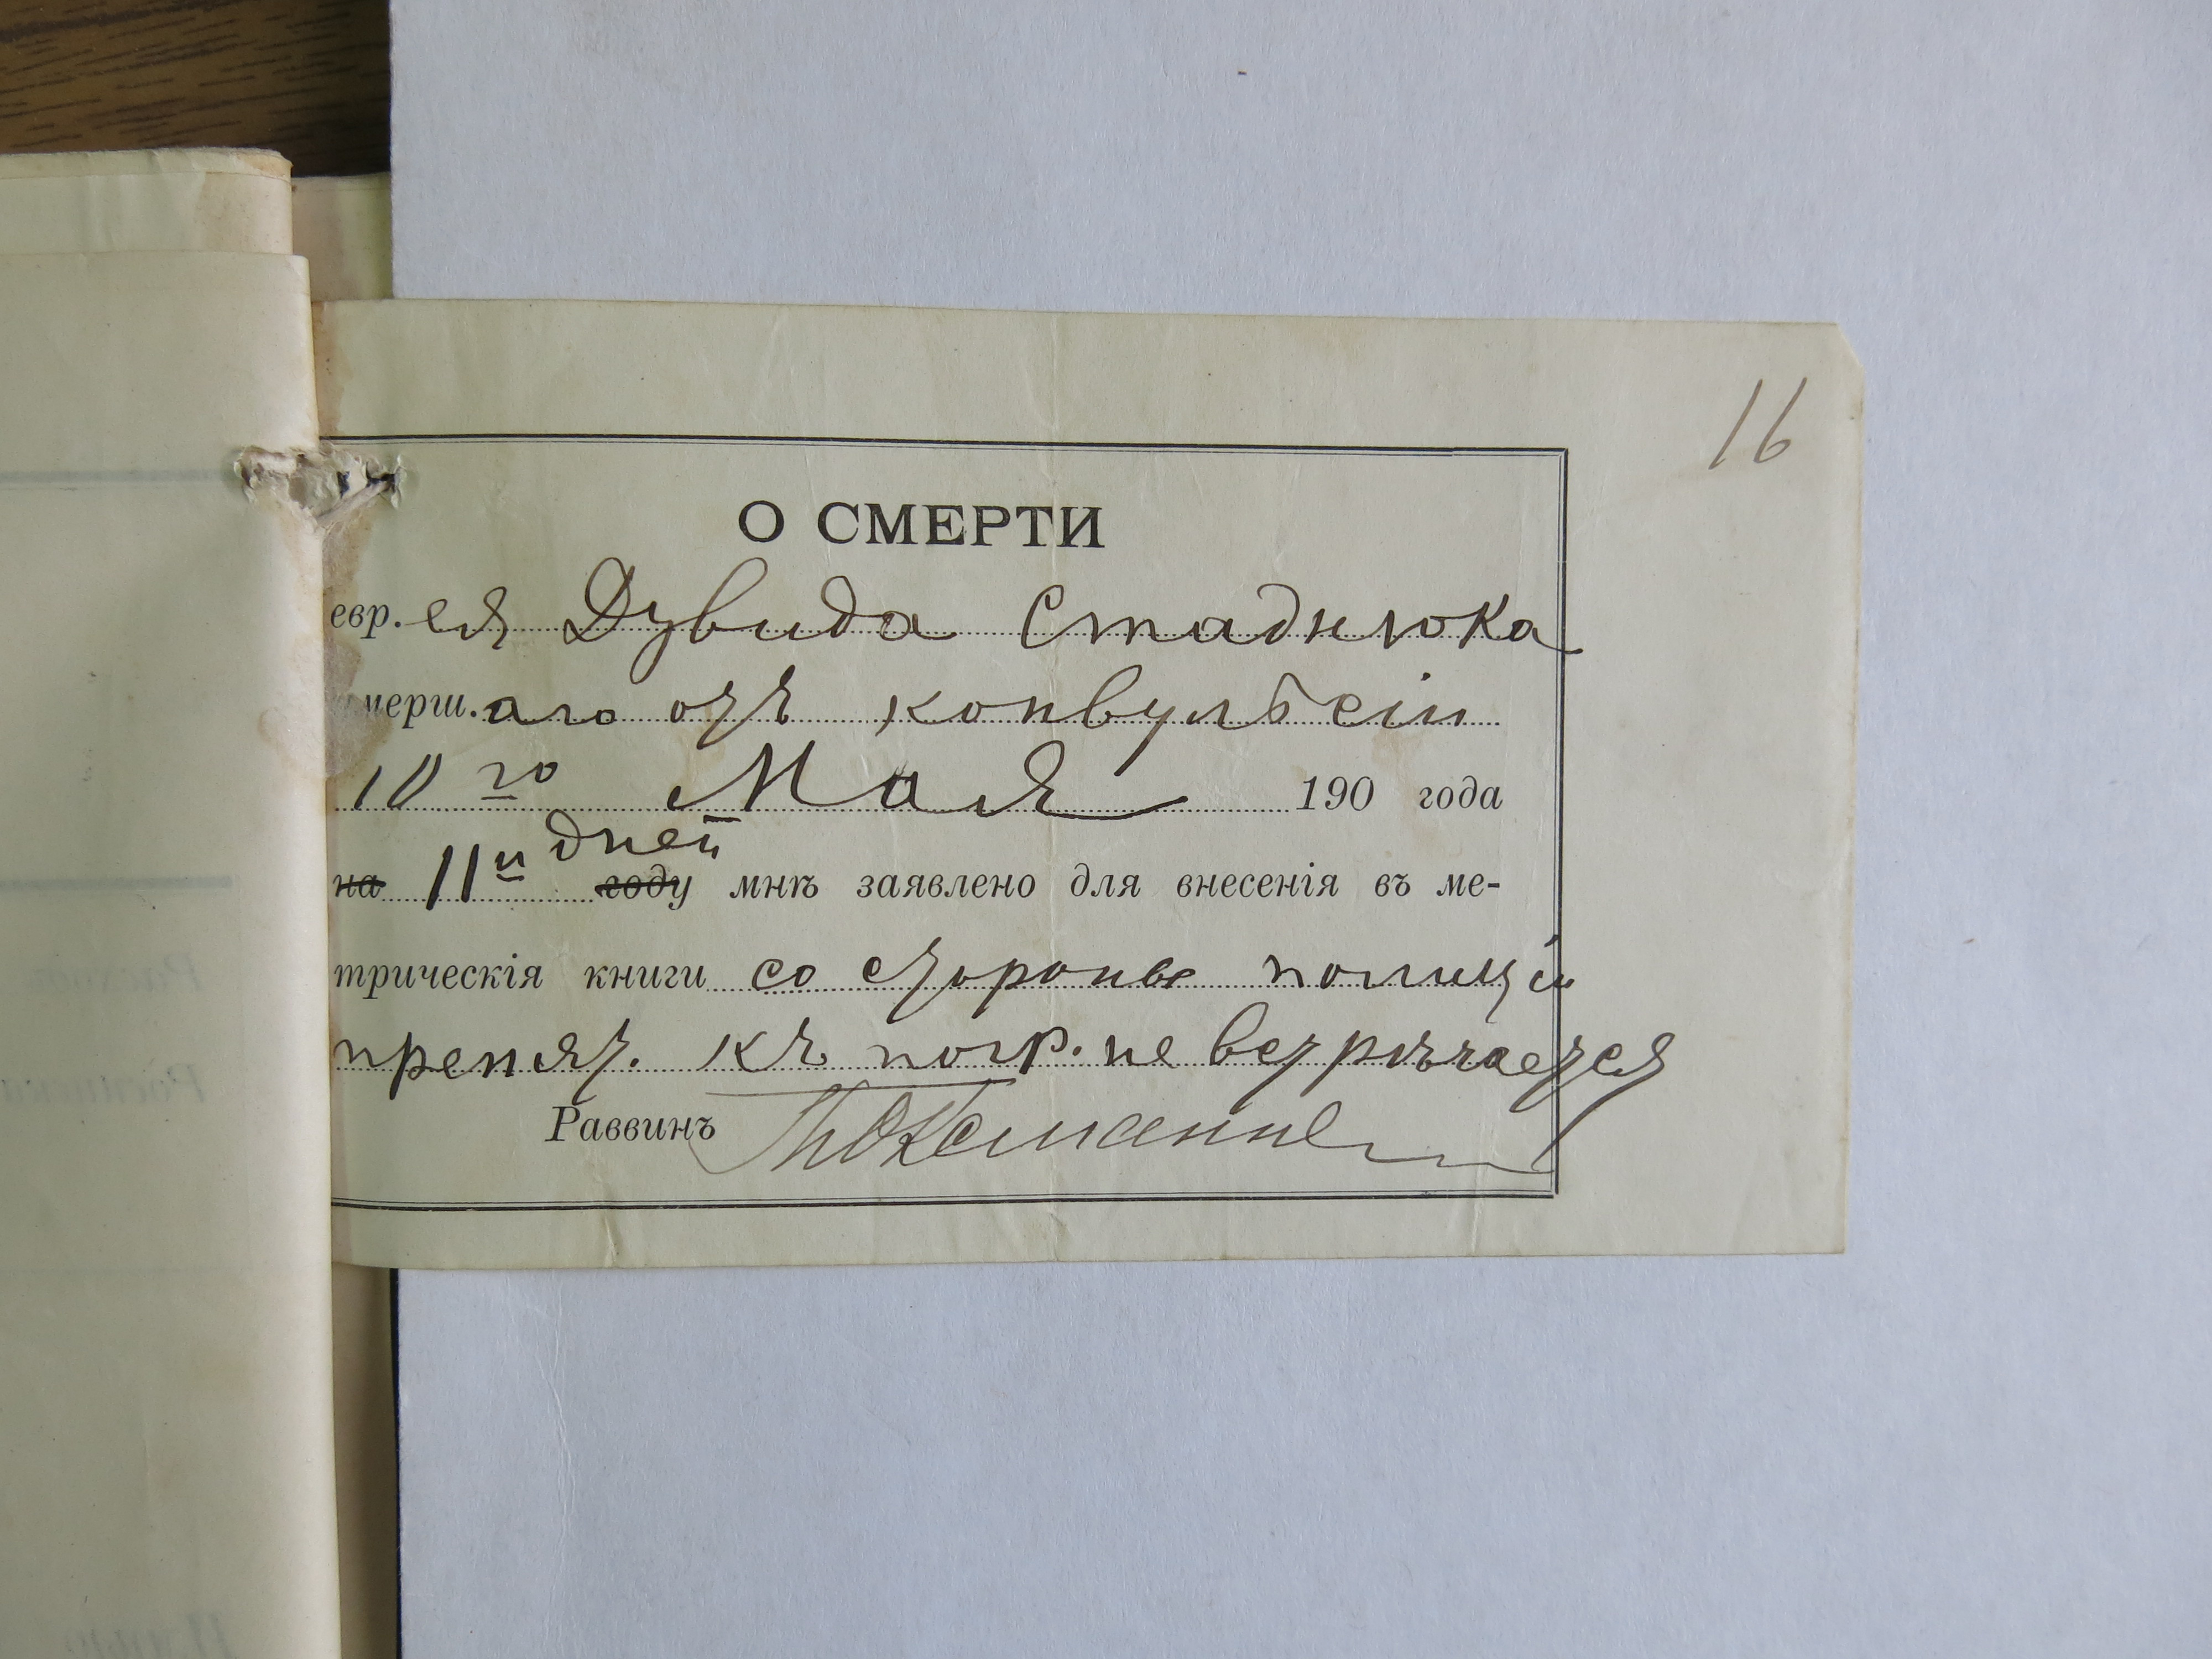 16
О СМЕРТИ
евр. ея Дувида Стаднюка
мерш. аго отъ конвульсіи
10 го Мая 190 года
на 11 и дней году мнѣ заявлено для внесенія въ ме-
трическія книги со стороны полиціи
препят. къ погр. не встрѣчается
Раввинъ